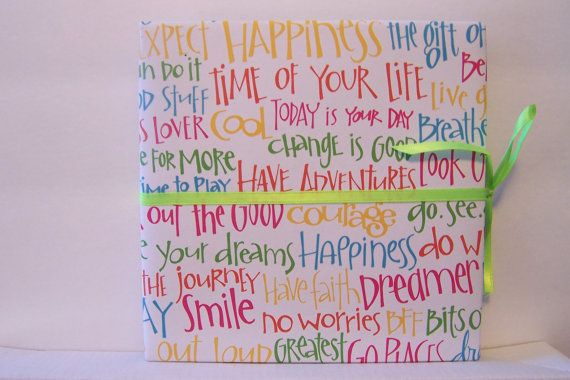 EXPECT HAPPINESS the gift of
an do it TIME OF YOUR LIFE Be
OD STUFF Live g
S LOVER COOL TODAY iS YOUR DAY Breathe
E FOR MORE CHANGE iS GOOD LOOK O
ime to PLAY HAVE ADVENTURES
out the GOOD courage go. see.
e your dreams HAPPiNESS do w
the journey Have faith Dreamer
AY Smile no worries BFF Bits o
out loud GREATEST GO PLACES dr